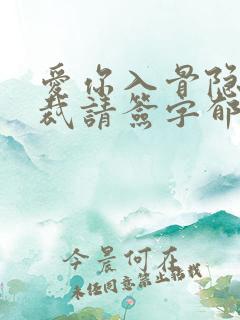 爱你入骨隐
裁請簽字郁
今晨何在
未经同意禁止搭载